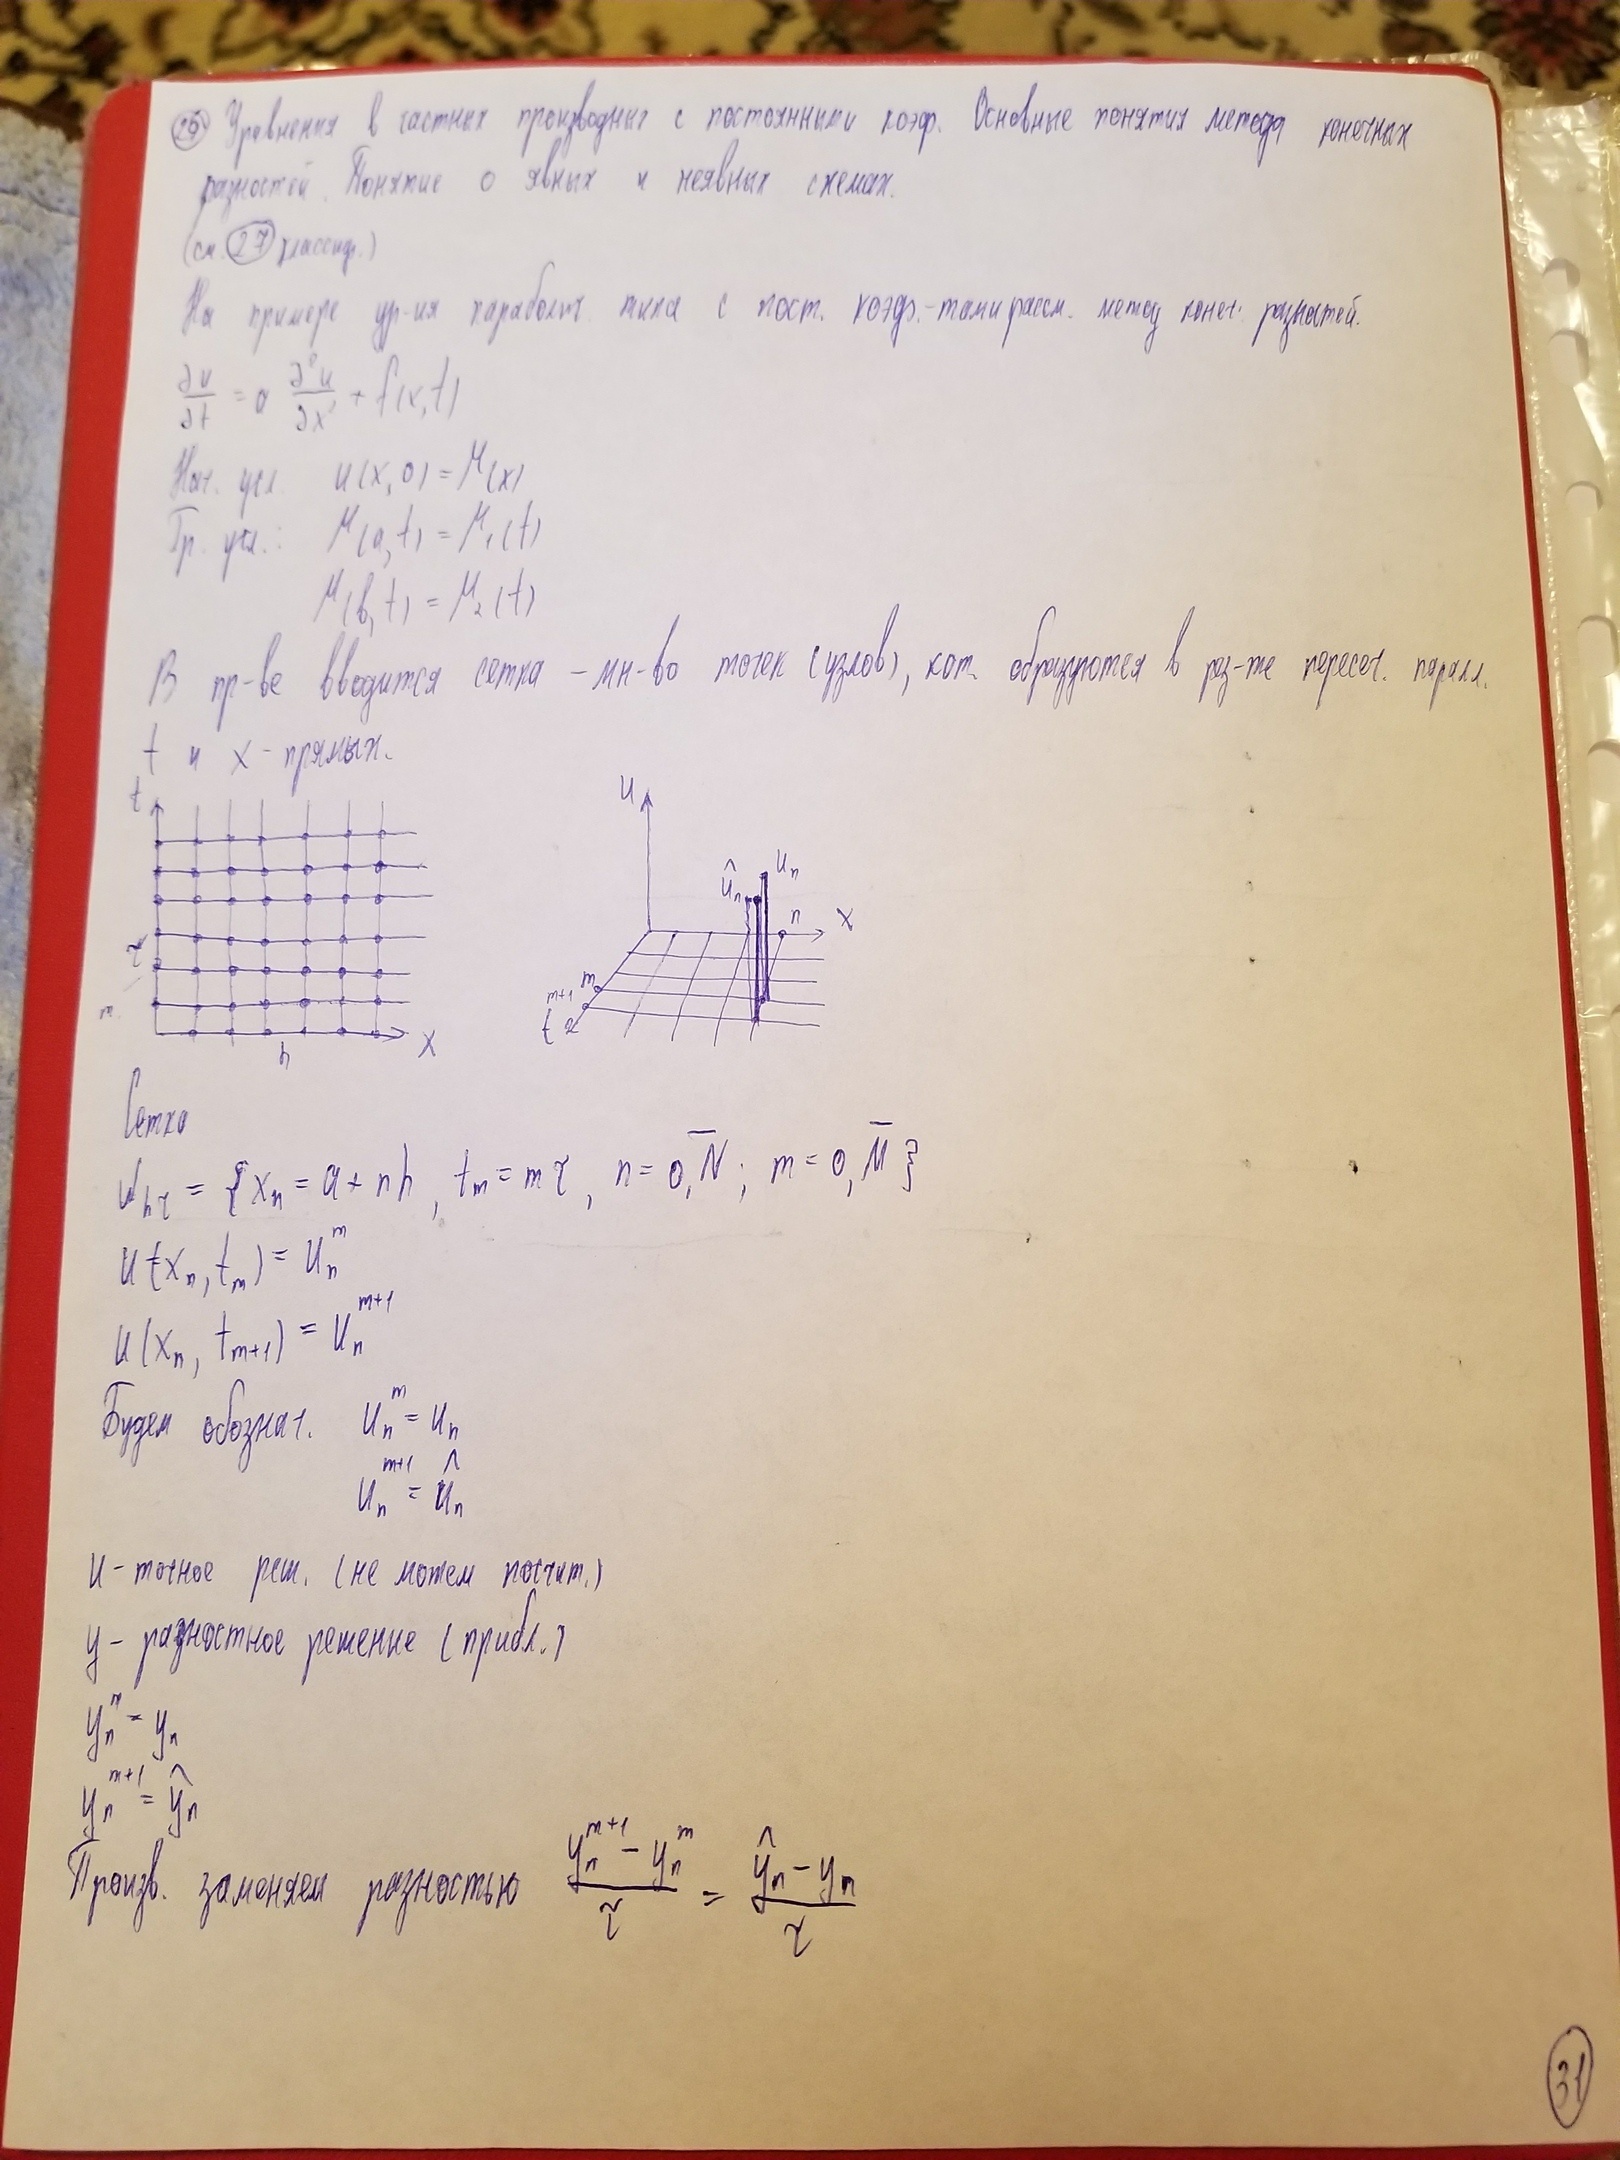 29 Уравнения в частных производных с постоянными коэф. Основные понятия метода конечных
разностей. Понятие о явных и неявных схемах.
(см. 27 классиф.)
На примере ур-ия параболич. типа с пост. коэф.-тами рассм. метод конеч. разностей.
∂u/∂t = a ∂²u/∂x² + f(x,t)
Нач. усл. u(x,0) = μ(x)
Гр. усл.: μ(a,t) = μ₁(t)
μ(b,t) = μ₂(t)
В пр-ве вводится сетка - мн-во точек (узлов), кот. образуются в рез-те пересеч. паралл.
t и x - прямых.
t
τ
m
h
x
u
ûₙ uₙ
n x
m
m+1
t τ
Сетка
ω_hτ = {xₙ = a + nh, t_m = mτ, n = 0,N̅; m = 0,M̅}
u(xₙ, t_m) = uₙ^m
u(xₙ, t_{m+1}) = uₙ^{m+1}
Будем обознач. uₙ^m = uₙ
uₙ^{m+1} = ûₙ
u - точное реш. (не можем посчит.)
y - разностное решение (прибл.)
yₙ^m = yₙ
yₙ^{m+1} = ŷₙ
Произв. заменяем разностью (yₙ^{m+1} - yₙ^m)/τ = (ŷₙ - yₙ)/τ
31